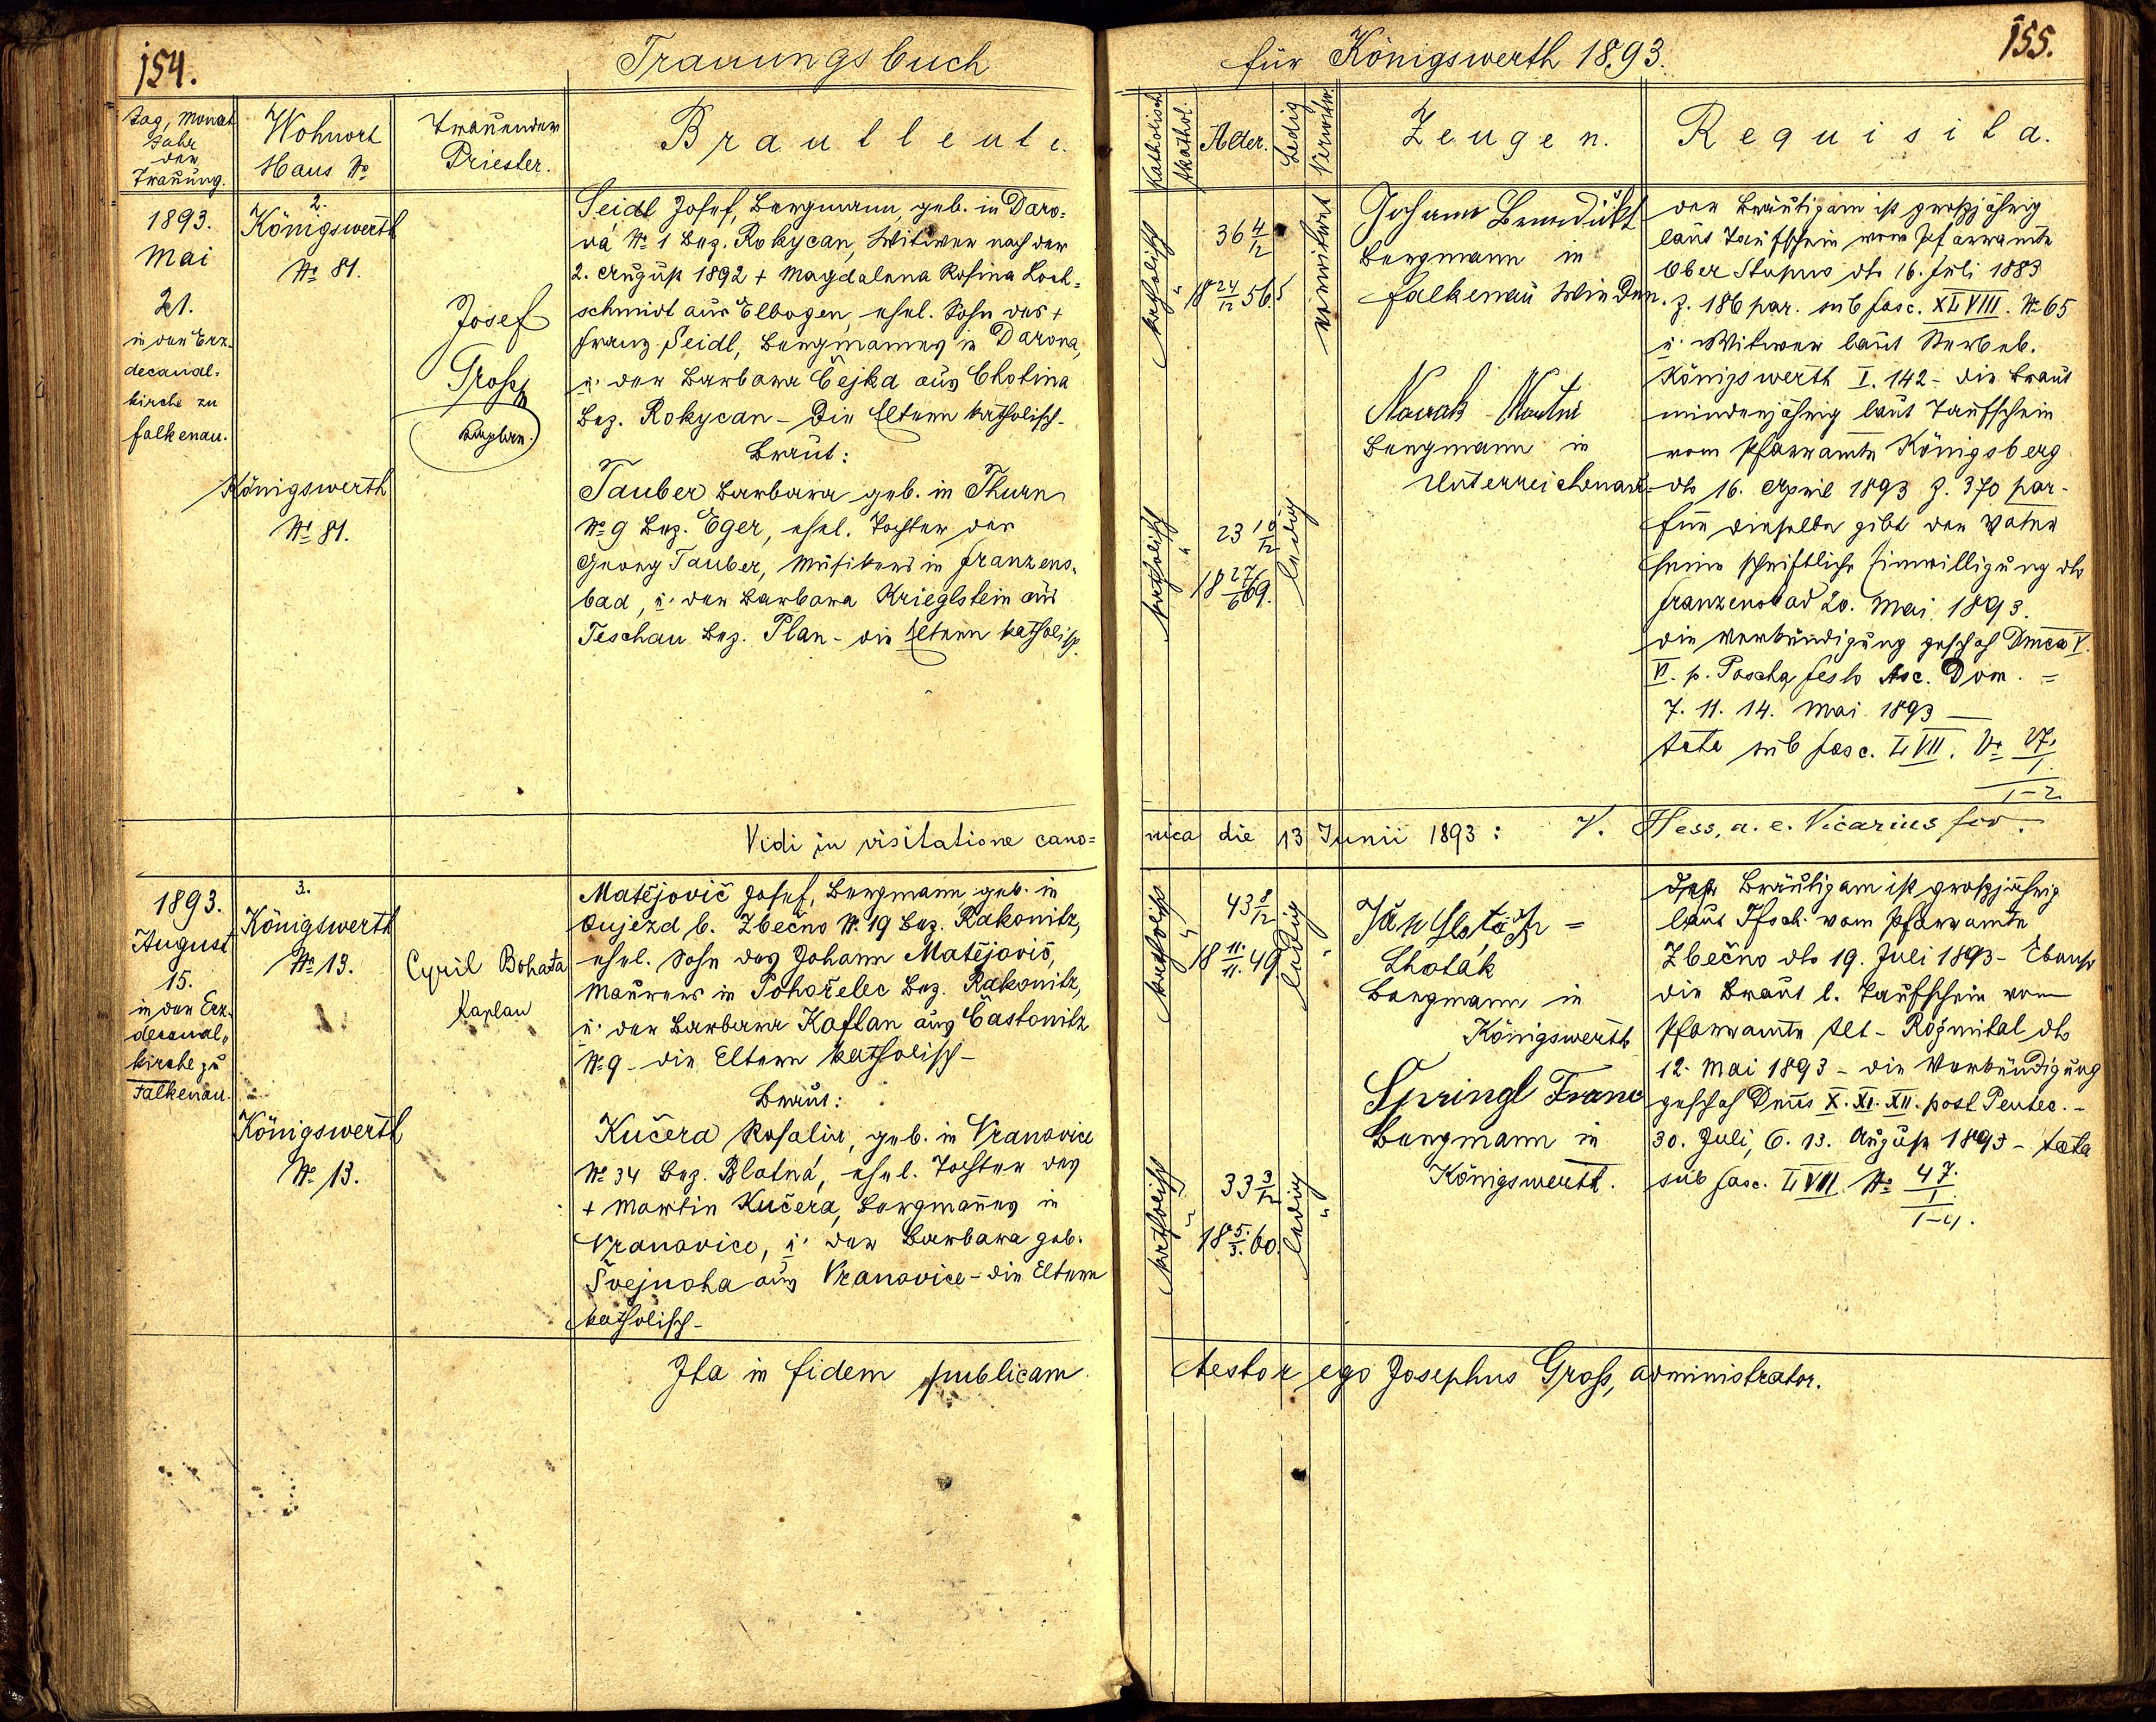 154.
Trauungsbuch
Tag, Monat
Jahr
der
Trauung.
Wohnort
Haus No
Trauender
Priester.
Brautleute.
1893.
Mai
21.
in der Erz-
decanal-
kirche zu
Falkenau.
2.
Königswerth
No 81.
Königswerth
No 81.
Josef
Gross
Kaplan.
Seidl Josef, Bergmann, geb. in Daro=
vá No 1 Bez. Rokycan, Witwer nach der
2. August 1892 + Magdalena Rosina Loch=
schmidt aus Elbogen, ehel. Sohn des +
Franz Seidl, Bergmannes in Darova,
u. der Barbara Čejka aus Chotina
Bez. Rokycan - Die Eltern katholisch-
Braut:
Tauber Barbara geb. in Thurn
No 9 Bez. Eger, ehel. Tochter des
Georg Tauber, Musikers in Franzens-
bad, u. der Barbara Krieglstein aus
Teschau Bez. Plan - die Eltern katholisch.
Vidi in visitatione cano=
1893.
August
15.
in der Erz-
decanal-
kirche zu
Falkenau.
3.
Königswerth
No 13.
Königswerth
No 13.
Cyril Bohata
Kaplan
Matějovič Josef, Bergmann geb. in
Oujezd b. Zbečno No 19 Bez. Rakonitz,
ehel. Sohn des Johann Matějovič,
Maurers in Pohořelec Bez. Rakonitz,
u. der Barbara Kaftan aus Častonitz
No 9 - die Eltern katholisch-
Braut:
Kučera Rosalia, geb. in Vranovice
No 34 Bez. Blatná, ehel. Tochter des
+ Martin Kučera, Bergmannes in
Vranovice, u. der Barbara geb.
Švejnoha aus Vranovice - die Eltern
katholisch-
Ita in fidem publicam
155.
für Königswerth 1893.
Katholisch
Akathol.
Alter.
Ledig
Verwitw.
Zeugen.
Requisita.
katholisch
"
36 4/12
18 24/12 56.
verwitwet
katholisch
"
23 10/12
18 27/6 69.
ledig
Johann Benedickt
Bergmann in
Falkenau Wieden.
Novak Martin
Bergmann in
Unterreichenau.
der Bräutigam ist großjährig
laut Taufschein vom Pfarramte
Ober Stupno dto 16. Juli 1883
Z. 186 par. sub fasc. XLVIII. No 65
u. Witwer laut Sterbeb.
Königswerth I. 142 - die Braut
minderjährig laut Taufschein
vom Pfarramte Königsberg
dto 16. April 1893 Z. 370 par-
für dieselbe gibt der Vater
seine schriftliche Einwilligung dto
Franzensbad 20. Mai 1893.
die Verkündigung geschah Dmca V.
VI. p. Pascha, festo Asc. Dom. =
7. 11. 14. Mai 1893 -
Acta sub fasc. LVII. No 27.
1-2
nica die 13 Junii 1893: V. Hess, a. e. Vicarius for.
katholisch
"
43 8/12
18 11./11. 49
ledig
"
katholisch
"
33 3/12
18 5./3. 60.
ledig
"
Lhoták
Bergmann in
Königswerth
Springl Franc
Bergmann in
Königswerth.
Der Bräutigam ist großjährig
laut Tfsch. vom Pfarramte
Zbečno dto 19. Juli 1893 - Ebenso
die Braut l. Taufschein vom
Pfarramte Alt-Rožmital dto
12. Mai 1893 - die Verkündigung
geschah Dnis X. XI. XII. post Pentec. -
30. Juli, 6. 13. August 1893 - Acta
sub fasc. LVII No 47.
1.
1-4.
testor ego Josephus Gross, administrator.